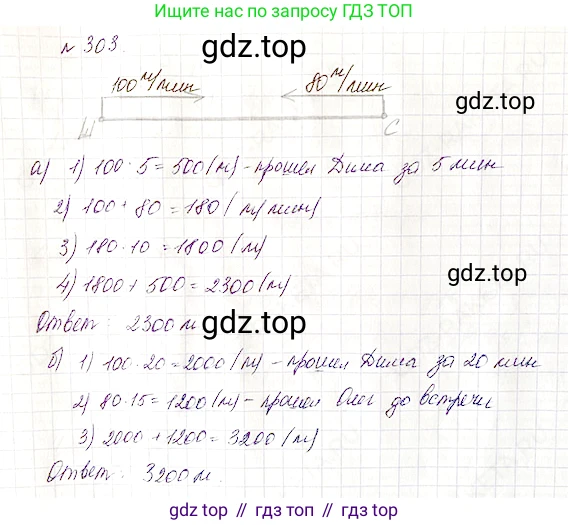 Ищите нас в поиске по запросу ГДЗ ТОП
№ 303.
gdz.top
100 м/мин 80 м/мин
gdz.top
Ш С
а) 1) 100 · 5 = 500 (м) - прошел Дима за 5 мин
2) 100 + 80 = 180 (м/мин)
3) 180 · 10 = 1800 (м)
4) 1800 + 500 = 2300 (м)
gdz.top
Ответ: 2300 м
gdz.top
б) 1) 100 · 20 = 2000 (м) - прошел Дима за 20 мин
2) 80 · 15 = 1200 (м) - прошел Олег до встречи
3) 2000 + 1200 = 3200 (м)
Ответ: 3200 м.
gdz.top
gdz.top // гдз.топ // gdz.top // гдз.топ